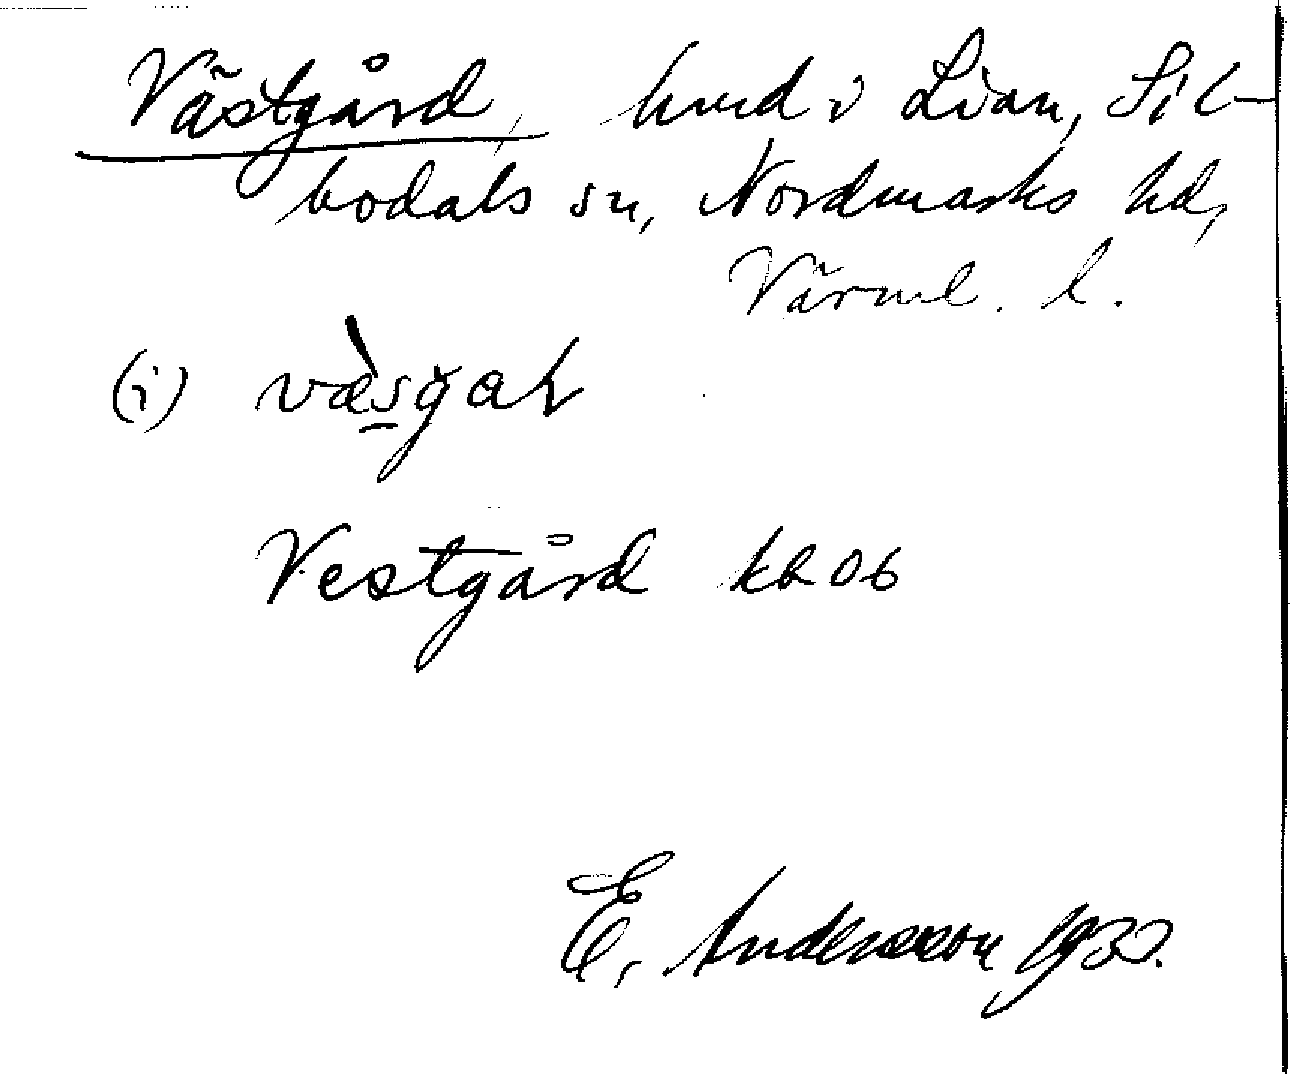 Västgård, hmd i Lian, Sil-
bodals sn, Nordmarks hd,
Värml. l.
(i) væ̀sgaɫ
Vestgård kb 06
E. Andersson 1932.